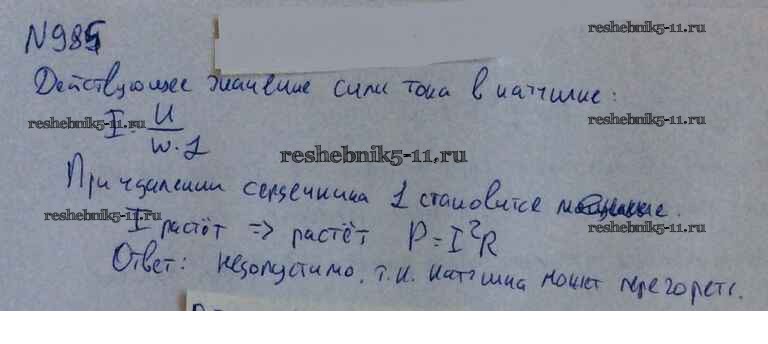 N985
reshebnik5-11.ru
Действующее значение силы тока в катушке:
I = U / w·L
reshebnik5-11.ru
reshebnik5-11.ru
reshebnik5-11.ru
При удалении сердечника L становится
reshebnik5-11.ru
reshebnik5-11.ru
I растёт => растёт P = I²R
Ответ: недопустимо, т.к. катушка может перегореть.